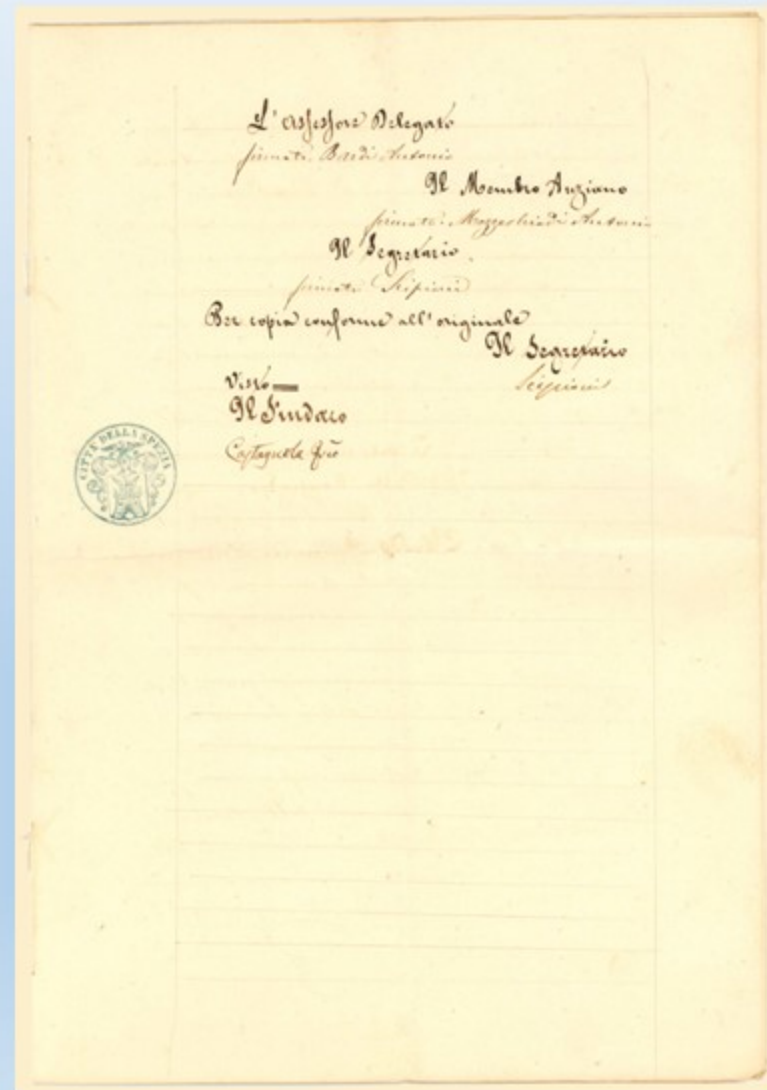 L'Assessore Delegato
firmato: Bardi Antonio
Il Membro Anziano
firmato: Antonio
Il Segretario
firmato Scipioni
Per copia conforme all'originale
Il Segretario
Scipioni
Visto
Il Sindaco
Castagnola
CITTÀ DELLA SPEZIA